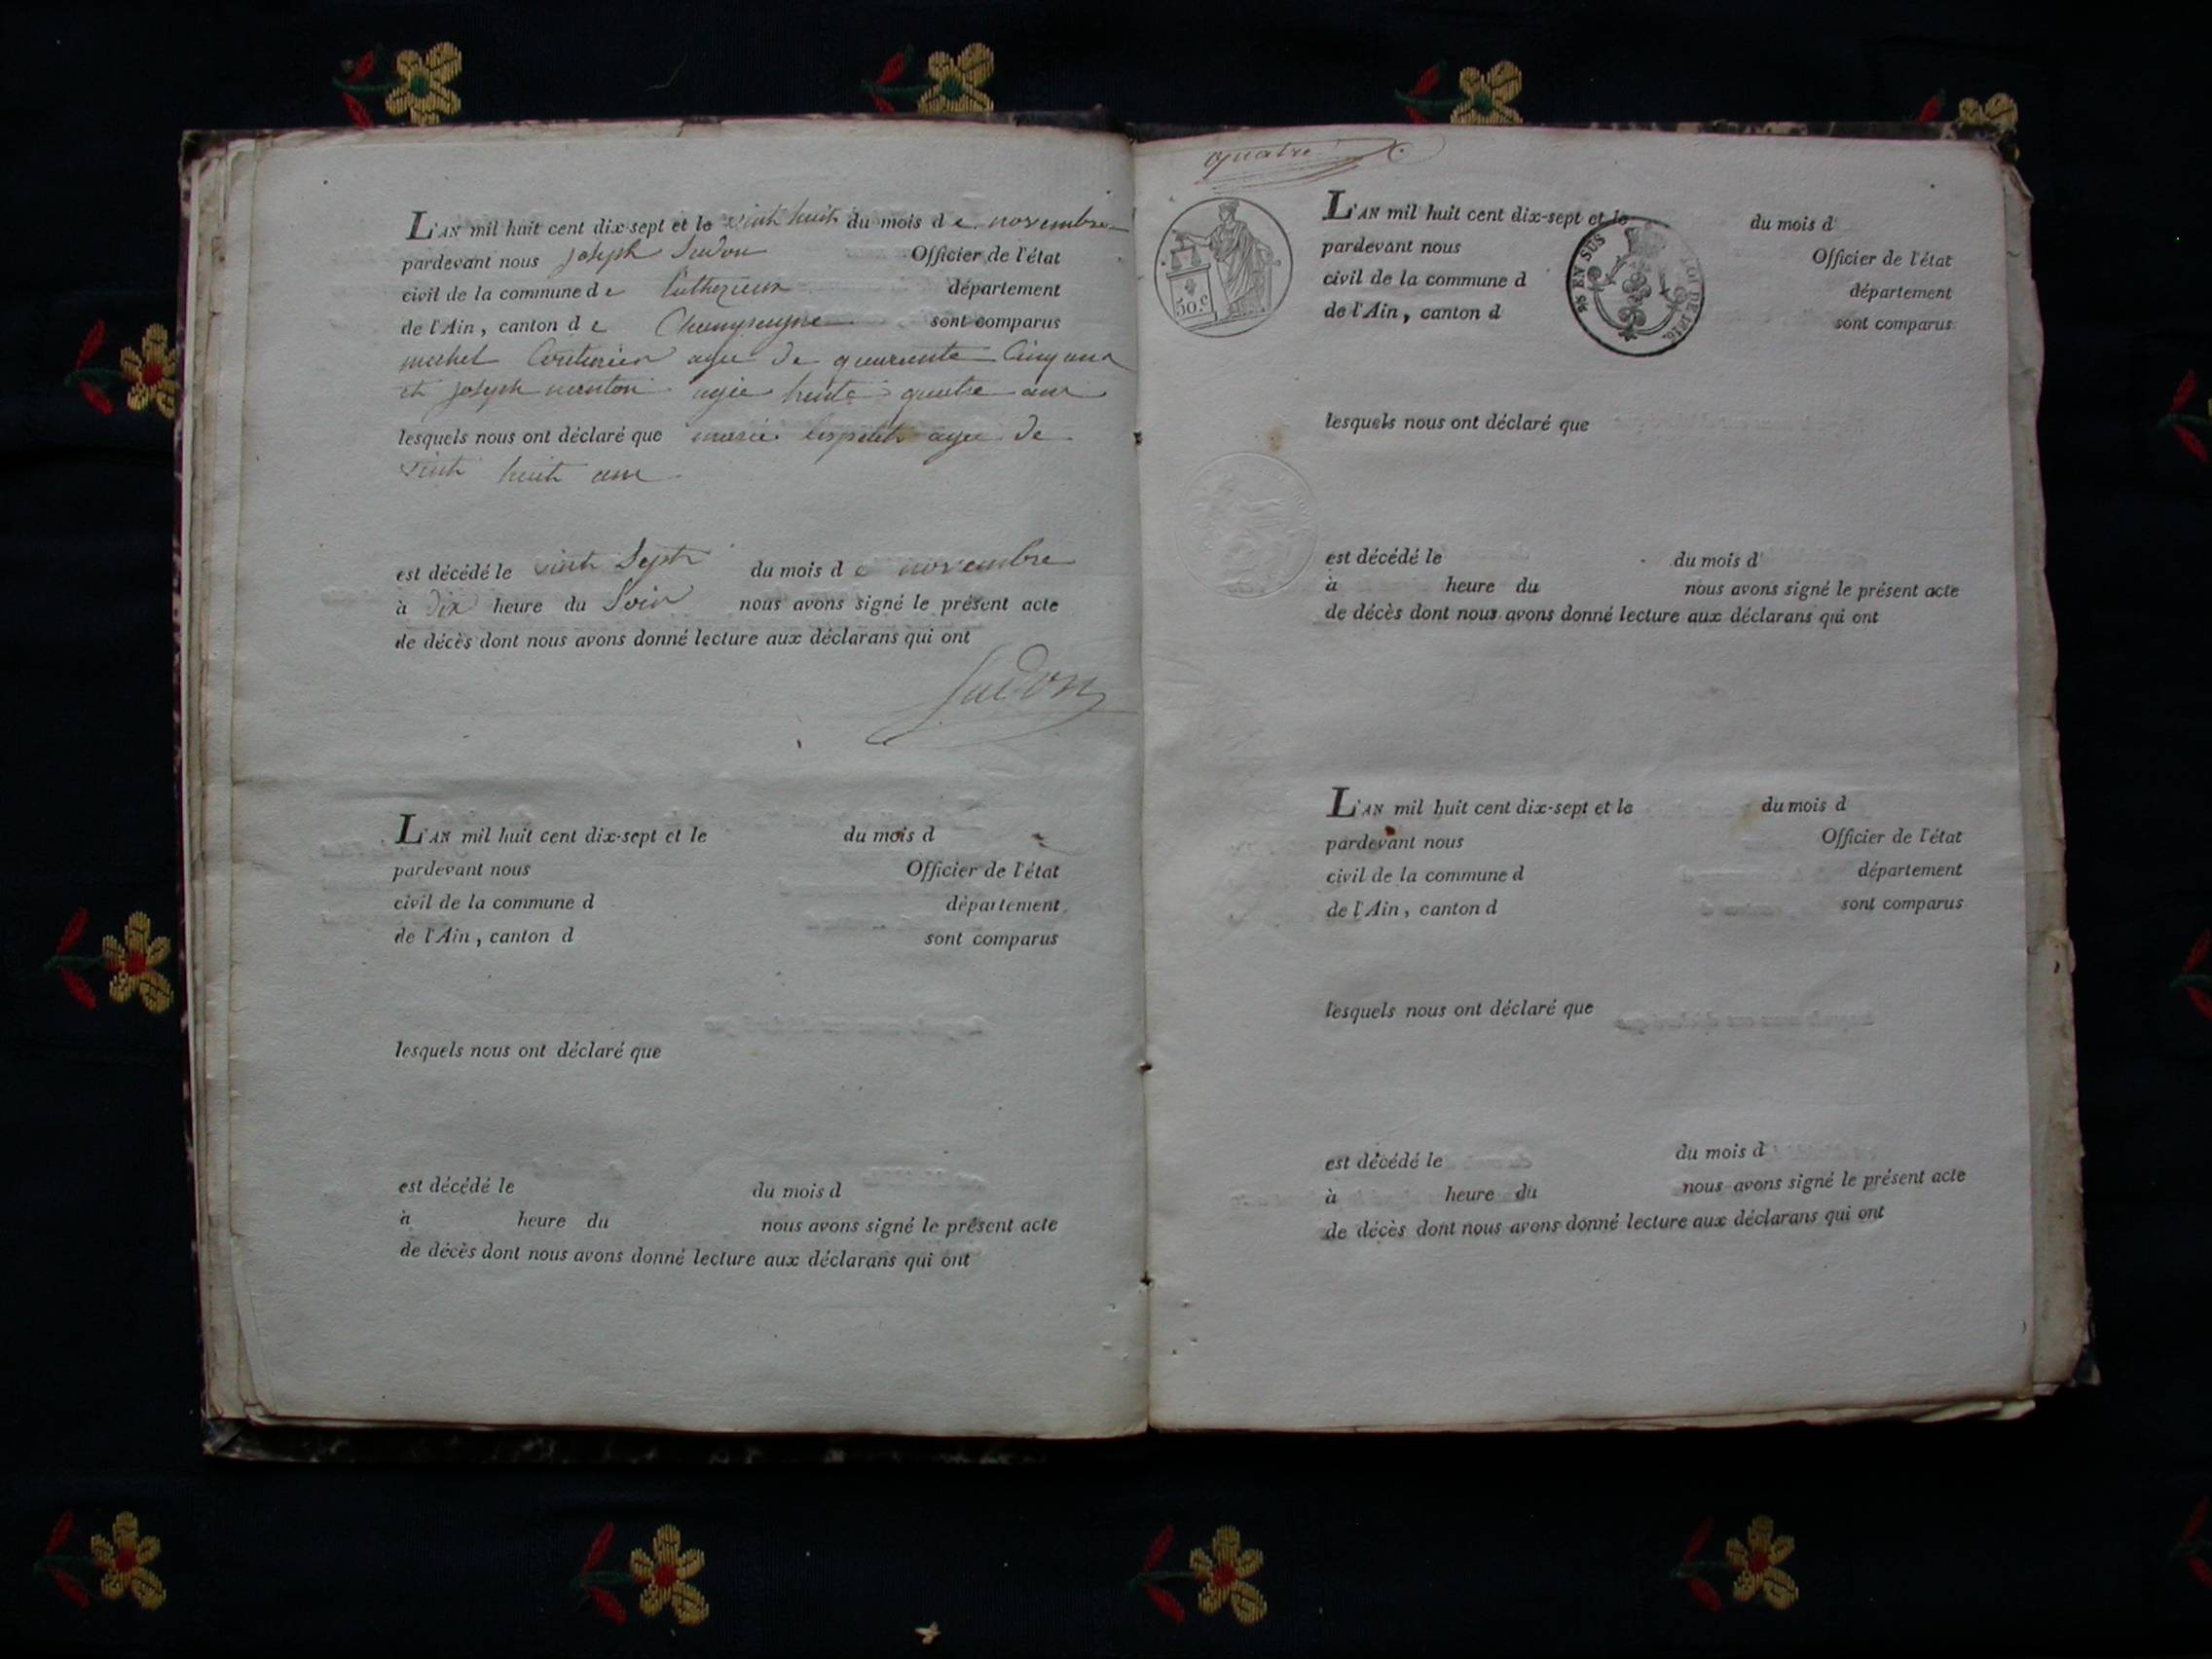 L'AN mil huit cent dix-sept et le vint huit du mois de novembre
pardevant nous joseph Sudon Officier de l'état
civil de la commune de Luthezieux département
de l'Ain, canton de Champagne sont comparus
michel Couturier agee de quarente Cinq ans
et joseph agee trente quatre ans
lesquels nous ont déclaré que marie agee de
vint huit ans
est décédé le vint Sept du mois de novembre
à dix heure du Soir nous avons signé le présent acte
de décès dont nous avons donné lecture aux déclarans qui ont
Sudon
L'AN mil huit cent dix-sept et le du mois d
pardevant nous Officier de l'état
civil de la commune d département
de l'Ain, canton d sont comparus
lesquels nous ont déclaré que
est décédé le du mois d
à heure du nous avons signé le présent acte
de décès dont nous avons donné lecture aux déclarans qui ont
quatre
50.c
EN SUS
LOI DE 1816.
L'AN mil huit cent dix-sept et le du mois d
pardevant nous Officier de l'état
civil de la commune d département
de l'Ain, canton d sont comparus
lesquels nous ont déclaré que
est décédé le du mois d
à heure du nous avons signé le présent acte
de décès dont nous avons donné lecture aux déclarans qui ont
L'AN mil huit cent dix-sept et le du mois d
pardevant nous Officier de l'état
civil de la commune d département
de l'Ain, canton d sont comparus
lesquels nous ont déclaré que
est décédé le du mois d
à heure du nous avons signé le présent acte
de décès dont nous avons donné lecture aux déclarans qui ont